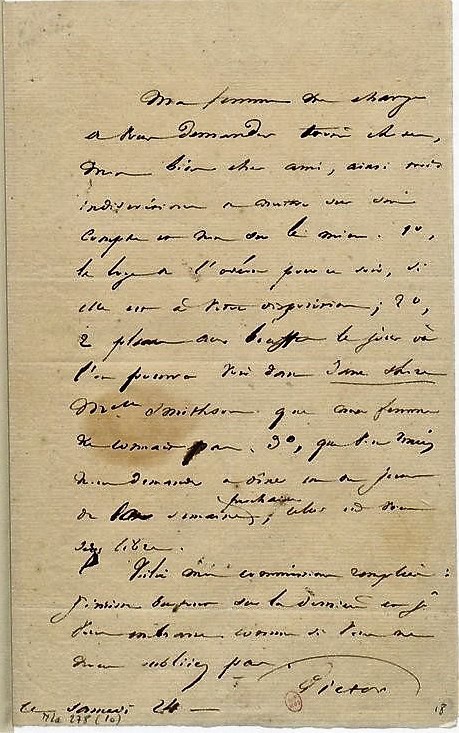 Ma femme me charge
de vous demander trois choses,
mon bien cher ami, ainsi mes
indiscrétions à mettre sur son
compte et non sur le mien. 1º,
la loge de l'odéon pour ce soir, si
elle est à votre disposition ; 2º,
2 places aux bouffes le jour où
l'on pourra voir dans Jane Shore
Melle Smithson que ma femme
ne connait pas. 3º, que vous veniez
nous demander à dîner un des jours
de la semaine prochaine, celui où vous
serez libre.
Voilà ma commission remplie :
j'insiste surtout sur la dernière et je
vous embrasse comme si vous ne
nous oubliiez pas.
Victor
ce samedi 24 —
18